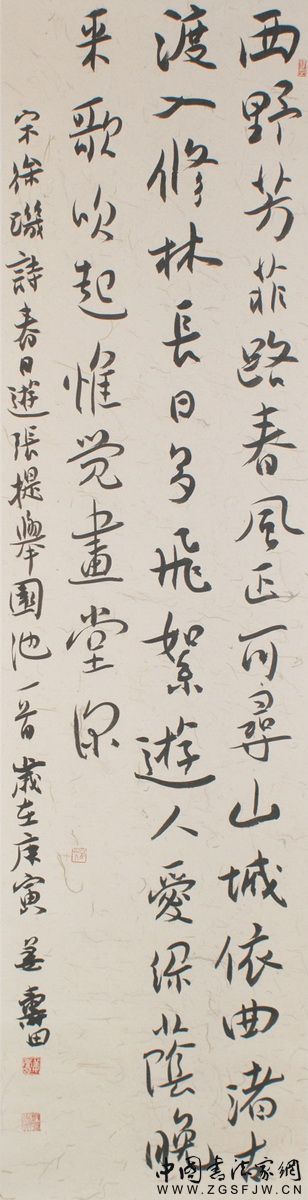 西野芳菲路春風正可尋山城依曲渚古
渡入修林長日多飛絮遊人愛綠蔭晚
来歌吹起惟觉畫堂深
宋徐璣詩春日遊張提舉園池一首歲在庚寅姜壽田
中國書法家網
WWW.ZGSFJW.CN